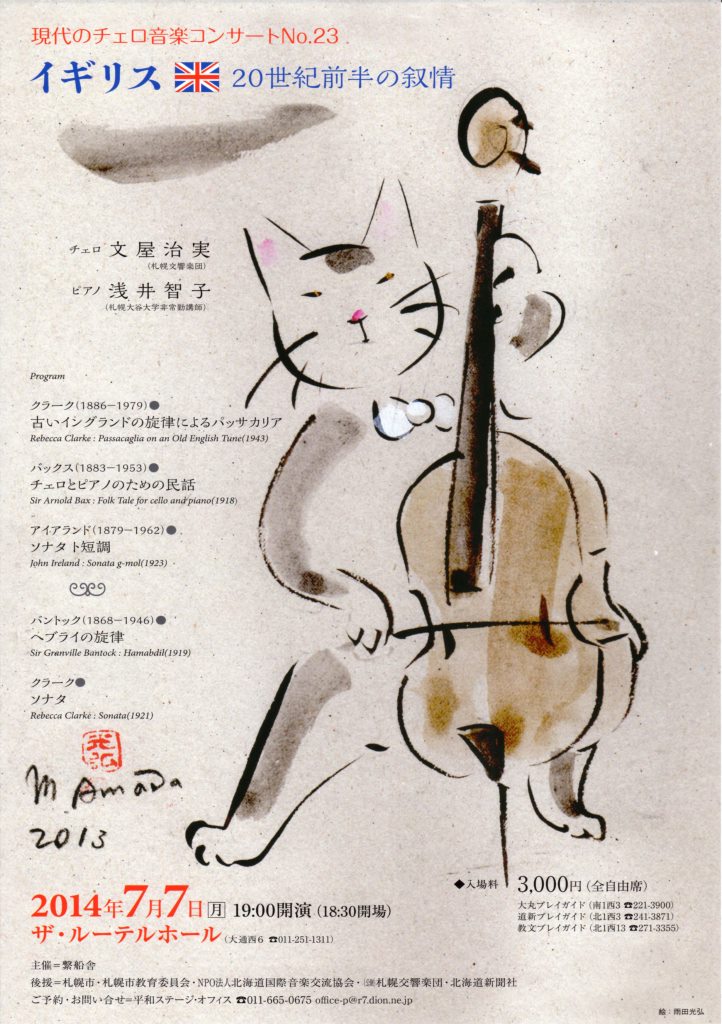 現代のチェロ音楽コンサートNo.23
イギリス 20世紀前半の叙情
チェロ 文屋治実
(札幌交響楽団)
ピアノ 浅井智子
(札幌大谷大学非常勤講師)
Program
クラーク(1886−1979)●
古いイングランドの旋律によるパッサカリア
Rebecca Clarke : Passacaglia on an Old English Tune(1943)
バックス(1883−1953)●
チェロとピアノのための民話
Sir Arnold Bax : Folk Tale for cello and piano(1918)
アイアランド(1879−1962)●
ソナタ ト短調
John Ireland : Sonata g-mol(1923)
バントック(1868−1946)●
ヘブライの旋律
Sir Granville Bantock : Hamabdil(1919)
クラーク●
ソナタ
Rebecca Clarke : Sonata(1921)
光弘
M Amada
2013
2014年7月7日月 19:00開演(18:30開場)
ザ・ルーテルホール(大通西6 ☎011-251-1311)
◆入場料 3,000円(全自由席)
大丸プレイガイド(南1西3 ☎221-3900)
道新プレイガイド(北1西3 ☎241-3871)
教文プレイガイド(北1西13 ☎271-3355)
主催=繋船舎
後援=札幌市・札幌市教育委員会・NPO法人北海道国際音楽交流協会・(公財)札幌交響楽団・北海道新聞社
ご予約・お問い合せ=平和ステージ・オフィス ☎011-665-0675 office-p@r7.dion.ne.jp
絵:雨田光弘